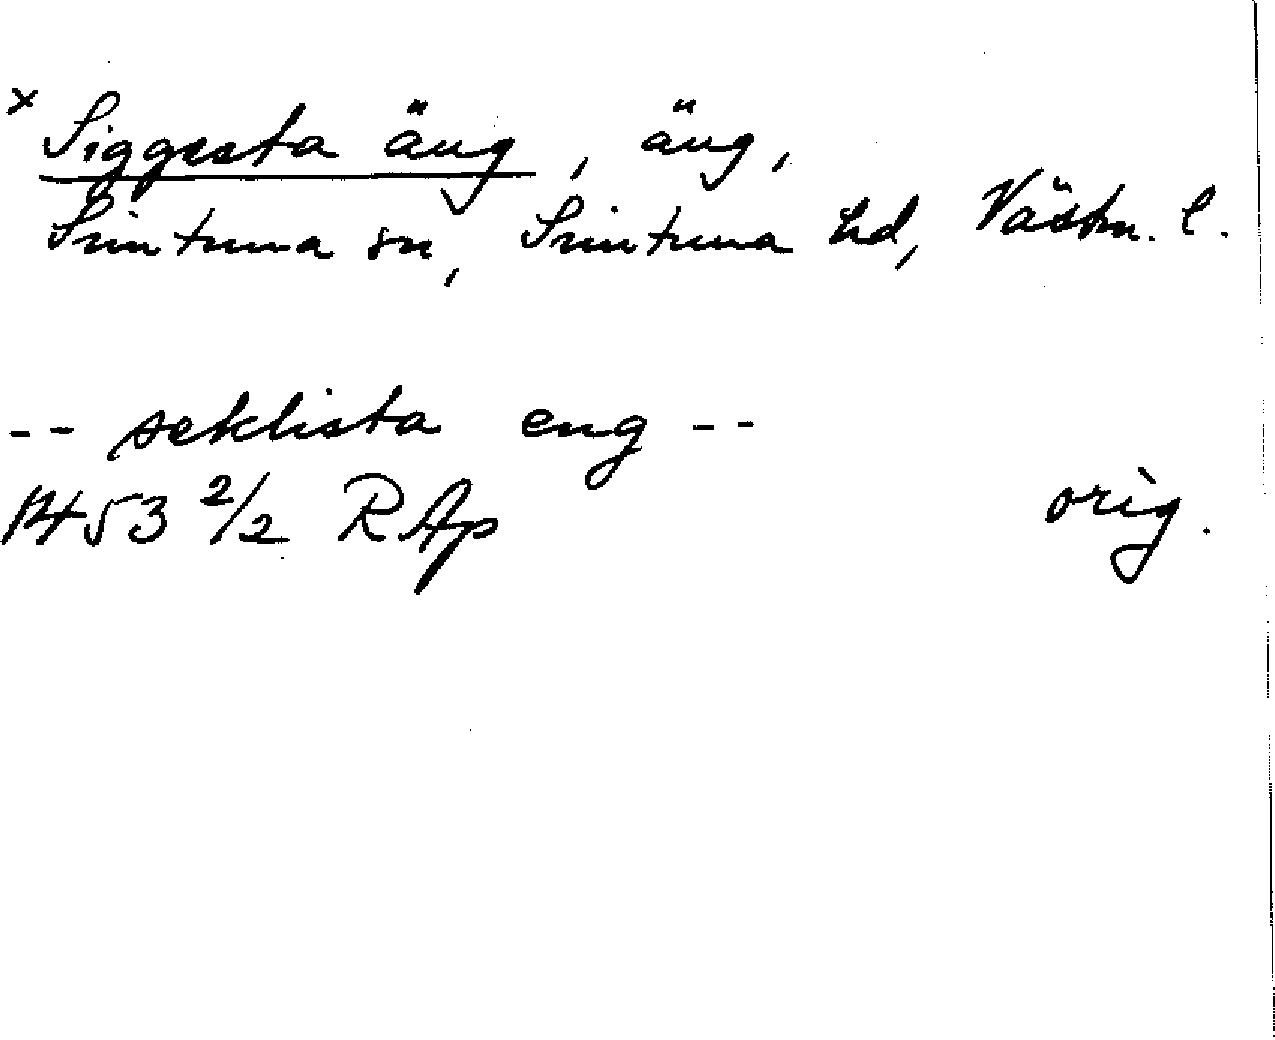 x Siggesta äng, äng,
Simtuna sn, Simtuna hd, Västm. l.
-- seklista eng --
1453 2/2 RAp orig.